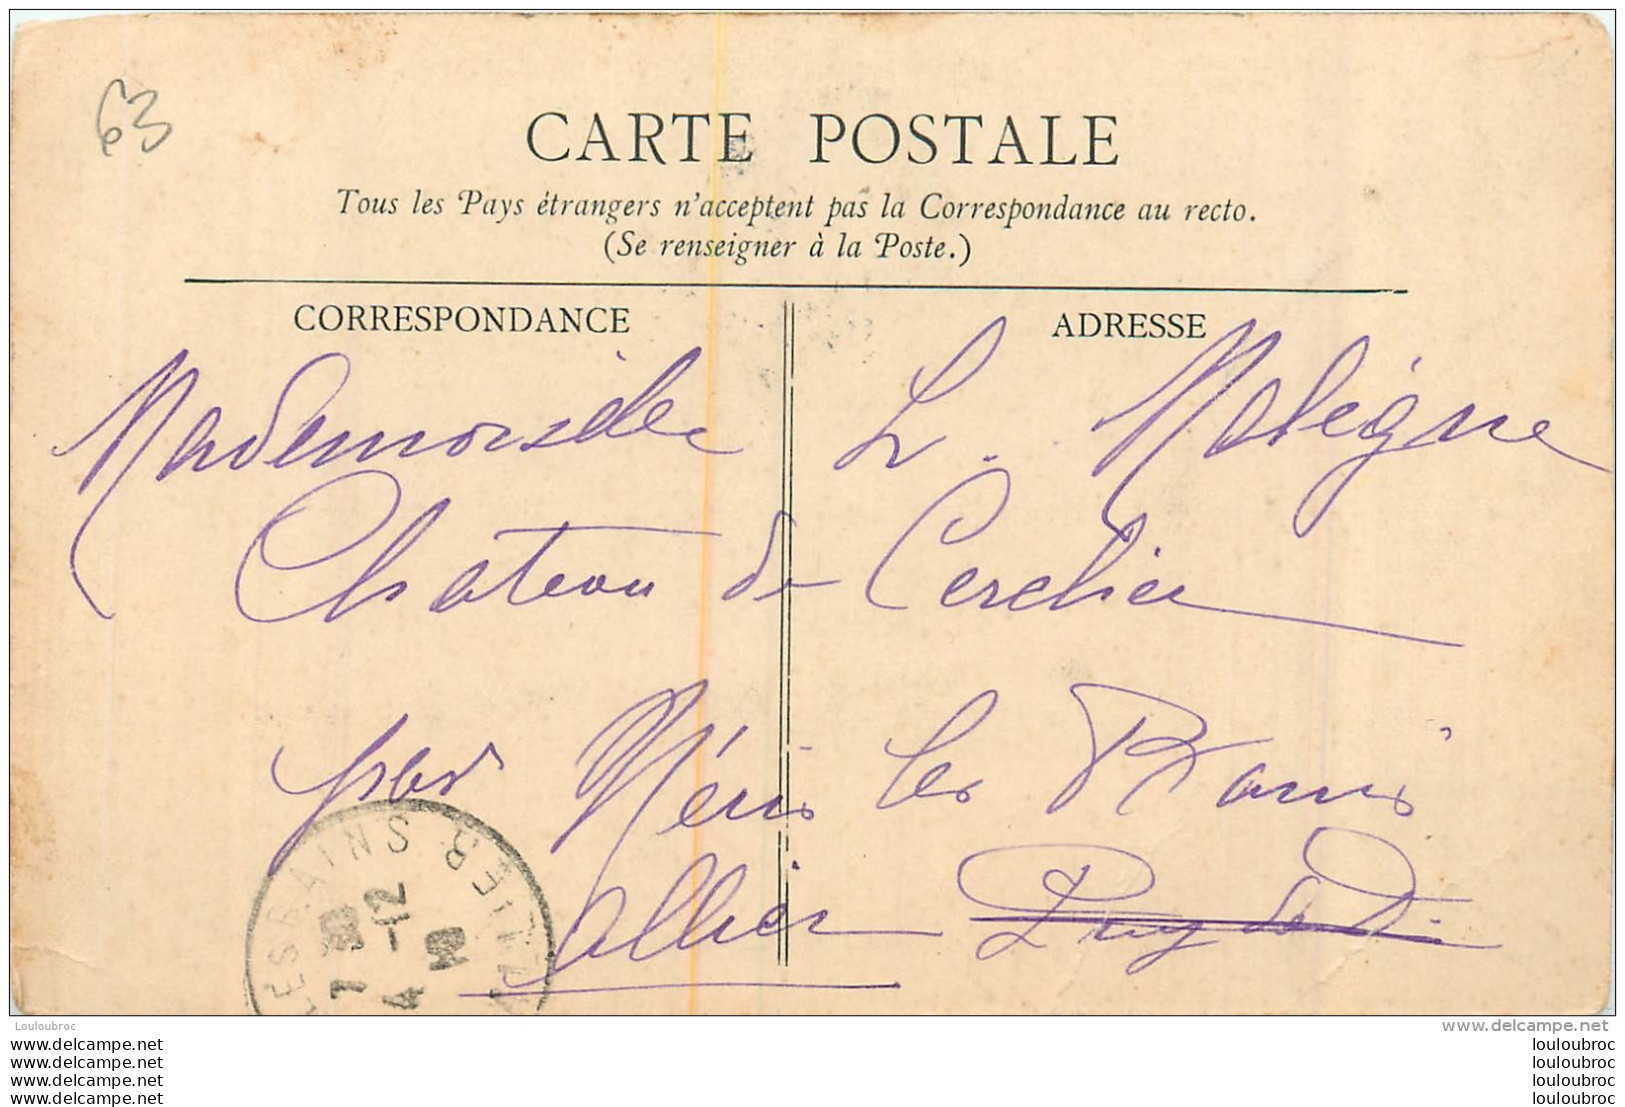 63
CARTE POSTALE
Tous les Pays étrangers n'acceptent pas la Correspondance au recto.
(Se renseigner à la Poste.)
CORRESPONDANCE ADRESSE
Mademoiselle L. Malégne
Château de Cerclier
par Néris les Bains
Allier Puy de D.
LES BAINS
7 30
4 -12
Louloubroc
www.delcampe.net
www.delcampe.net
www.delcampe.net
www.delcampe.net
www.delcampe.net
louloubroc
louloubroc
louloubroc
louloubroc